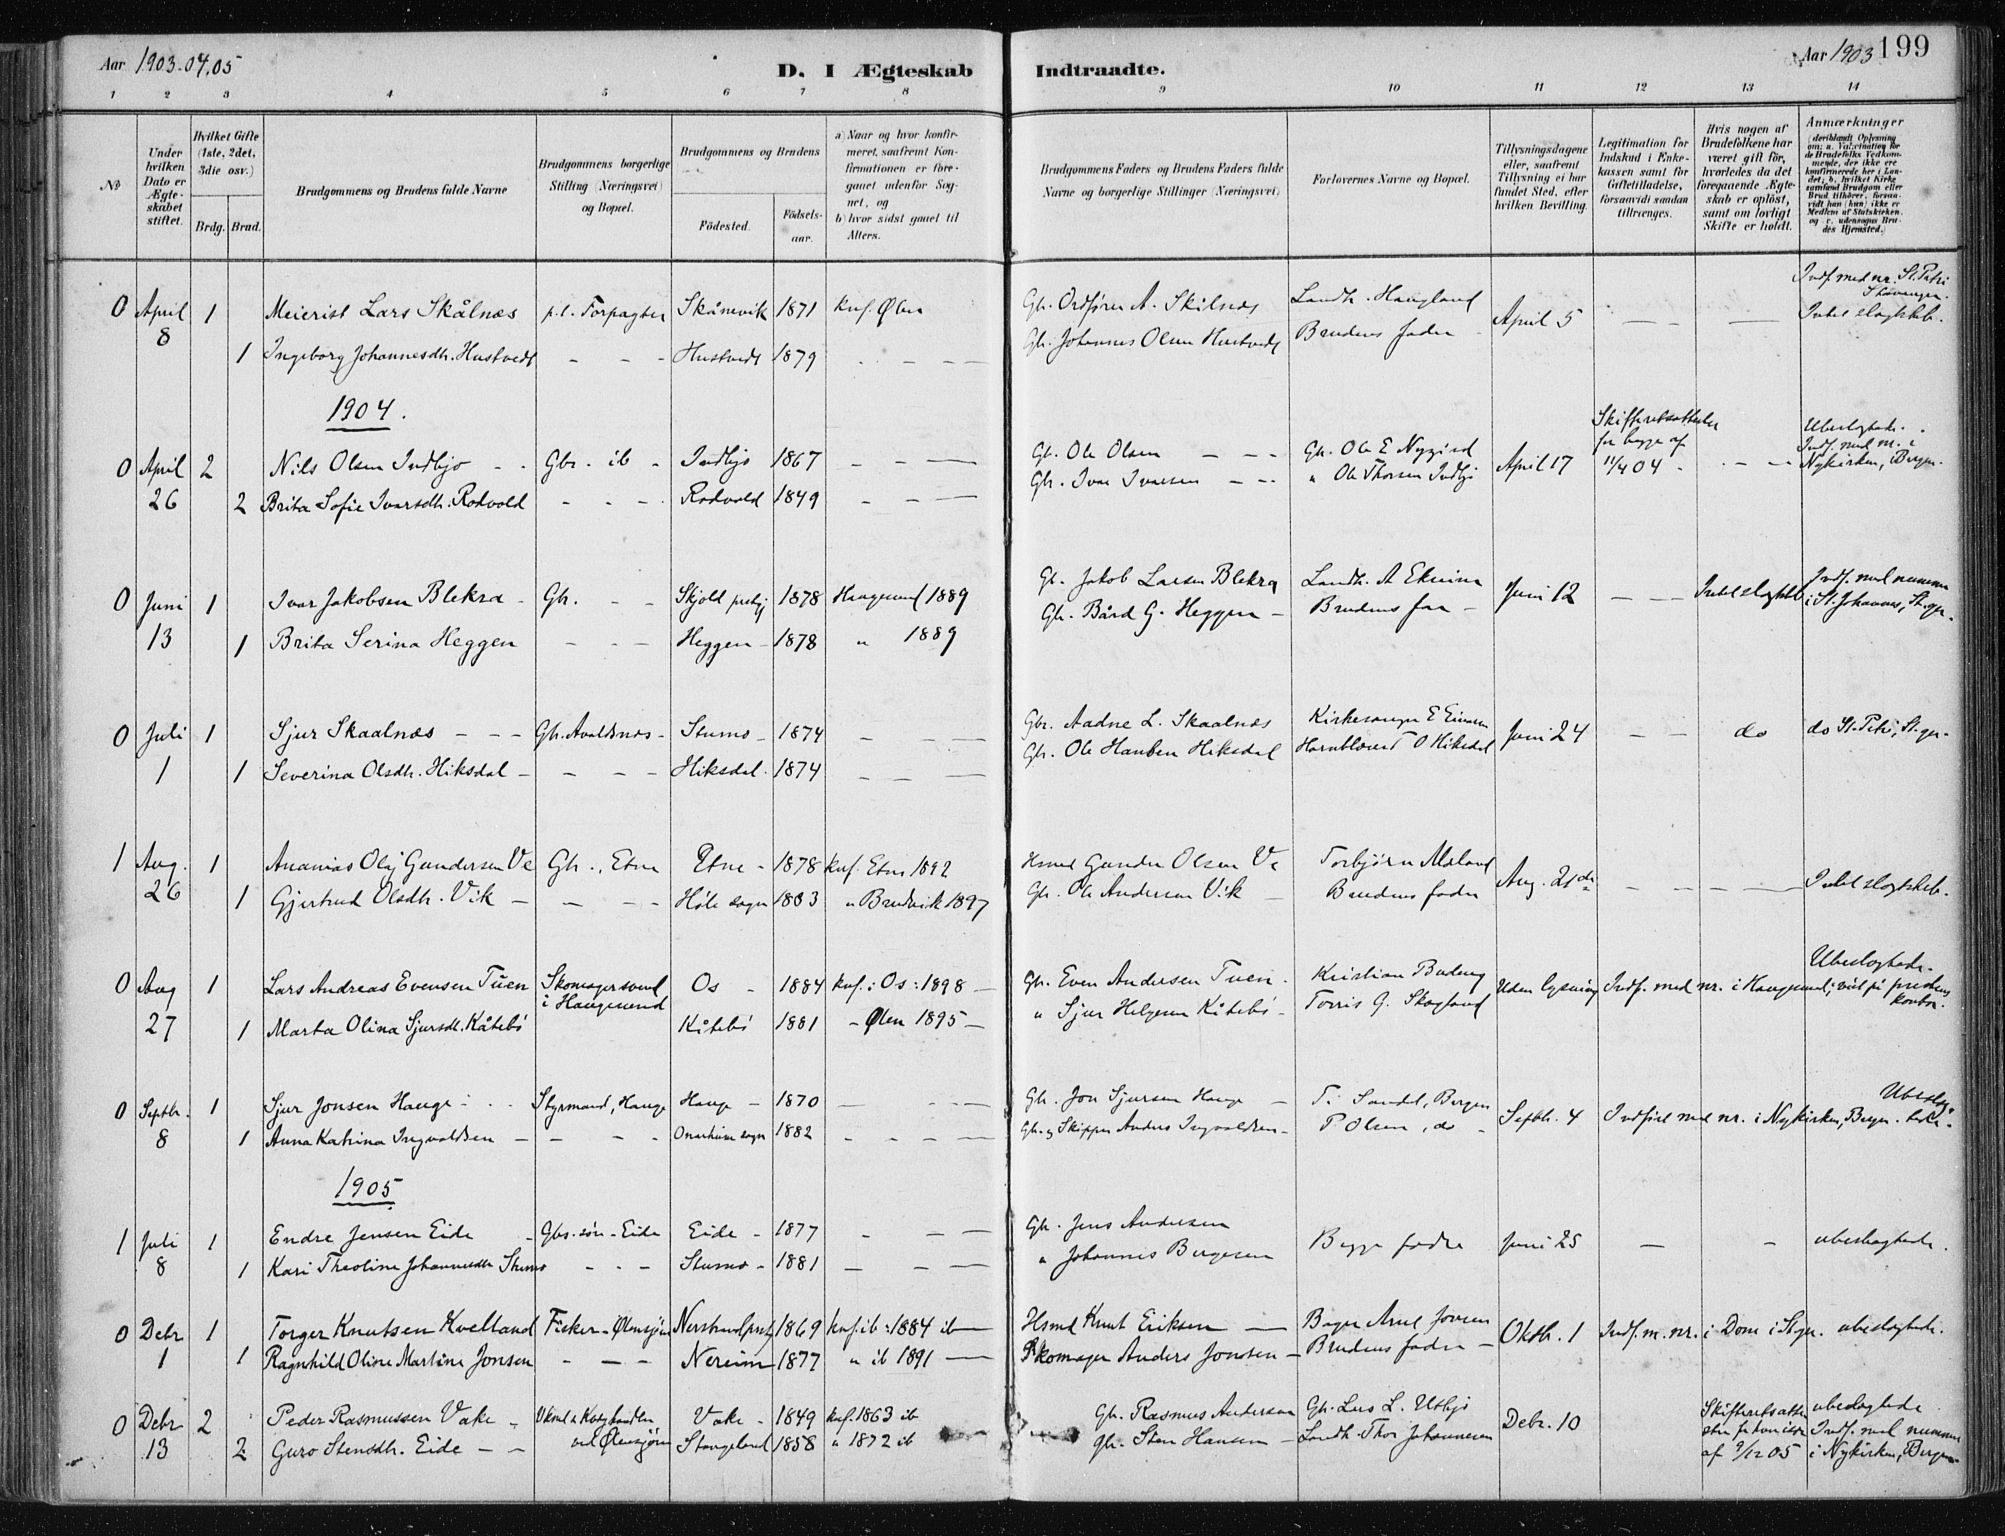 Aar 1903.04.05
D. I Ægteskab Indtraadte.
Aar 1903 199
1 2 3 4 5 6 7 8 9 10 11 12 13 14
No
Under hvilken Dato er Ægteskabet stiftet.
Hvilket Gifte (1ste, 2det, 3die osv.)
Brdg. Brud.
Brudgommens og Brudens fulde Navne
Brudgommens borgerlige Stilling (Næringsvei) og Bopæl.
Brudgommens og Brudens
Fødested.
Fødselsaar.
a) Naar og hvor konfirmeret, saafremt Konfirmationen er foregaaet udenfor Sognet, og
b) hvor sidst gaaet til Alters.
Brudgommens Faders og Brudens Faders fulde Navne og borgerlige Stillinger (Næringsvei)
Forlovernes Navne og Bopæl.
Tillysningsdagene eller, saafremt Tillysning ei har fundet Sted, efter hvilken Bevilling.
Legitimation for Indskud i Enkekassen samt for Giftetilladelse, forsaavidt saadan tiltrænges.
Hvis nogen af Brudefolkene har været gift før, hvorledes da det foregaaende Ægteskab er opløst, samt om lovligt Skifte er holdt.
Anmærkninger
0 April 1 Meierist Lars Skålnæs p.t. Forpagter Skånevik 1871 knf. Ølen Gbr. Ordfører A. Skålnæs Landh. Haugland April 5 Indf. med nr. St. Petri Stavanger.
8 1 Ingeborg Johannesdtr. Hustvedt Hustvedt 1879 Gbr. Johannes Olsen Hustvedt Brudens fader Intet slagtskab.
1904.
0 April 2 Nils Olsen Indbjo Gbr. ib Indbjo 1867 Gb. Ole Olsen Gbr. Ole E April 17 Skifteretsattester for begge af 11/4 04 Ubeslægtede. Indf. med nr. i Nykirken, Bergen.
26 2 Brita Sofie Ivarsdtr. Rodvold Rodvold 1849 Gbr. Ivar Ivarsen " Ole Thorsen Indbjo
0 Juni 1 Ivar Jakobsen Blekra Gbr. Skjold prstgj 1878 Haugesund 1889 Gb. Jakob Larsen Blekra Landh. A Ekrene Juni 12 Intet slagtskb Indf. med nummer i St. Johannes, St.ger.
13 1 Brita Serina Heggen Heggen 1878 " 1889 Gbr. Bård G. Heggen Brudens far
0 Juli 1 Sjur Skaalnæs Gbr. Avaldsnæs Stumo 1874 Gbr. Aadne L. Skaalnæs Kirkesanger E Juni 24 do do St. Petri, St.ger.
1 1 Severina Olsdtr. Hiksdal Hiksdal 1874 Gbr. Ole Hansen Hiksdal Hornblæser O Hiksdal
1 Aug. 1 Ananias Olaj Gundersen Ve Gbr., Etne Etne 1878 knf. Etne 1892 Hsmd Gunder Olsen Ve Torbjørn Mæland Aug. 21de Intet slagtskab.
26 1 Gjertrud Olsdtr. Vik Høle sogn 1883 " Brudvik 1897 Gbr. Ole Andersen Vik Brudens fader
0 Aug 1 Lars Andreas Evensen Tuen Skomagersvend i Haugesund Os 1884 knf. i Os: 1898 Gbr. Even Andersen Tuen Kristian Uden lysning Indf. med nr. i Haugesund; viet på prestens kontor. Ubeslagtede.
27 1 Marta Olina Sjursdtr. Kåtebø Kåtebø 1881 Ølen 1895 " Sjur Helgesen Kåtebø Torris G. Skogland
0 Septbr. 1 Sjur Jonsen Hauge Styrmand, Hauge Hauge 1870 Gbr. Jon Sjursen Hauge T. Sandal, Bergen Septbr. 4 Indført med nr. i Nykirken, Bergen. Ubeslægtede.
8 1 Anna Katrina Ingvaldsen Onarheim sogn 1882 Gbr. og Skipper Anders Ingvaldsen P Olsen, do
1905
1 Juli 1 Endre Jensen Eide Gbr.søn - Eide Eide 1877 Gbr. Jens Andersen Begge fædre Juni 25 ubeslagtede.
8 1 Kari Theoline Johannesdtr Stumo Stumo 1881 " Johannes Børgesen
0 Debr 1 Torger Knutsen Kvelland Fisker - Ølensjøen Nerstrand prstgj 1869 knf. ib: 1884 ib Hsmd Knut Eriksen Bager Arne Jonsen Oktbr. 1 Indf. m. nr. i Dom i St.gr. ubeslagtede.
1 1 Ragnhild Oline Martine Jonsen Nereim 1877 " ib 1891 Skomager Anders Jonsen Brudens fader
0 Debr 2 Peder Rasmussen Vake ved Ølensjøen Vake 1849 knf. 1863 ib Gbr. Rasmus Andersen Gbr. Lars L. Utbjo Debr. 10 Skifteretsattester for hver især af 9/12 05 ubeslagtede. Indf. med nummer i Nykirken, Bergen.
13 2 Guro Stensdtr. Eide Stangeland 1858 " 1872 ib Gbr. Sten Hansen Landh. Thor Johannesen